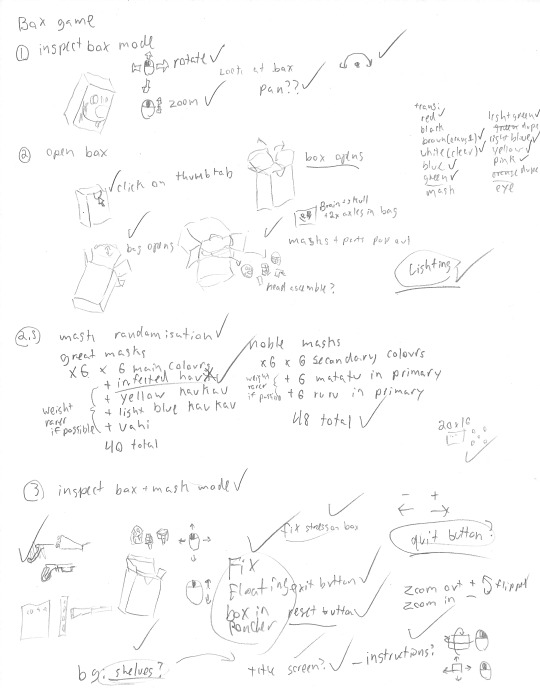 Box game
① inspect box mode
rotate
zoom
look at box
pan??
② open box
click on thumbtab
box opens
bag opens
Brain + skull
+ 2x axles in bag
masks + parts pour out
head assemble?
transp:
red
black
brown (orange)
white (clear)
blue
green
mask
light green
light blue
yellow
pink
eye
Lighting
②.5 mask randomisation
great masks
x6 x 6 main colours
+ infected hau
+ yellow kaukau
+ light blue kaukau
+ vahi
weight
rarer
if possible
40 total
noble masks
x6 x 6 secondary colours
+ 6 matatu in primary
+ 6 ruru in primary
weight
rarer
if possible
48 total
20x10
③ inspect box + mask mode
fix stress on box
Fix
floating
box in
exit button
reset button
- +
quit button?
zoom out +
zoom in -
flipped
bg: shelves?
title screen?
- instructions?